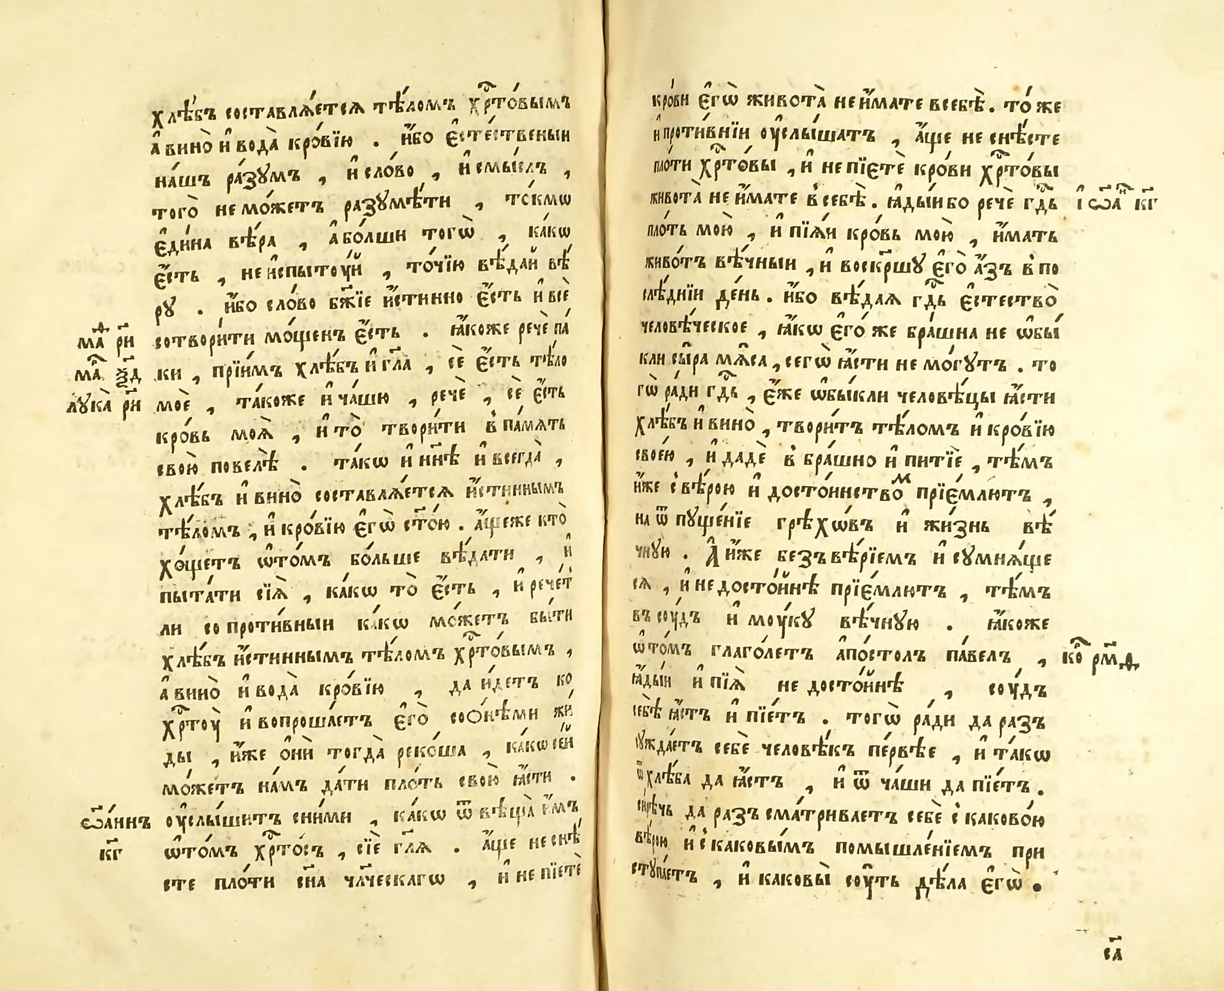 хлѣ́бъ составлѧ́етсѧ тѣ́ломъ хрⷭ҇то́вымъ
а҆ вино̀ и҆ вода̀ кро́вїю . и҆́бо є҆сте́ственыи
на́шъ ра́зꙋмъ , и҆ сло́во , и҆ смы́слъ ,
того̀ не мо́жетъ разꙋмѣ́ти , то́кмѡ
є҆ди́на вѣ́ра , а҆ бо́лши тогѡ̀ , ка́кѡ
є҆́сть , не и҆спытꙋ́й , то́чїю вѣ́дай вѣ́
рꙋ . и҆́бо сло́во бж҃їе и҆́стинно є҆́сть и҆ всѐ
ма́ѳ рг҃і сотвори́ти мо́щенъ є҆́сть . ꙗ҆́коже речѐ па́
ма́р ѯд҃ ки , прїи́мъ хлѣ́бъ и҆ гл҃а , сѐ є҆́сть тѣ́ло
лꙋка̀ рг҃і моѐ , та́коже и҆ ча́шю , речѐ , сѐ є҆́сть
кро́вь моѧ̀ , и҆ то̀ твори́ти в̾ па́мѧть
свою̀ повелѣ̀ . та́кѡ и҆ нн҃ѣ и҆ всегда̀ ,
хлѣ́бъ и҆ вино̀ составлѧ́етсѧ и҆́стиннымъ
тѣ́ломъ , и҆ кро́вїю є҆гѡ̀ ст҃о́ю . а҆́щеже кто̀
хо́щетъ ѡ҆то́мъ бо́льше вѣ́дати , и҆
пыта́ти сїѧ̀ , ка́кѡ то̀ є҆́сть , и҆ рече́т
ли сопроти́вныи ка́кѡ мо́жетъ бы́ти
хлѣ́бъ и҆́стиннымъ тѣ́ломъ хрⷭ҇то́вымъ ,
а҆ вино̀ и҆ вода̀ кро́вїю , да и҆́детъ ко
хрⷭ҇тꙋ̀ и҆ вопроша́етъ є҆го̀ со ѻ҆нѣ́ми жи
ды̀ , и҆́же ѻ҆нѝ тогда̀ реко́ша , ка́кѡ се́й
мо́жетъ на́мъ да́ти пло́ть свою̀ ꙗ҆́сти .
і҆ѡа́ннъ ᲂу҆слы́шитъ сни́ми , ка́кѡ ѿвѣща̀ и҆́мъ
кг҃ ѡ҆то́мъ хрⷭ҇то́съ , сїѐ гл҃ѧ . а҆́ще не снѣ́
сте пло́ти сн҃а чл҃ческагѡ , и҆ не пїетѐ
кро́ви є҆гѡ̀ живота̀ не и҆́мате всебѣ̀ . то́же
и҆ проти́внїи ᲂу҆слы́шатъ , а҆́ще не снѣ́сте
пло́ти хрⷭ҇то́вы , и҆ не пїетѐ кро́ви хрⷭ҇то́вы
живота̀ не и҆́мате в̾себѣ̀ . ꙗ҆ды́ибо речѐ гдⷭ҇ь і҆ѡа́ кг҃
пло́ть мою̀ , и҆ пїѧ́и кро́вь мою̀ , и҆́мать
живо́тъ вѣ́чныи , и҆ воскр҃шꙋ є҆го̀ а҆́зъ в̾ по
слѣ́днїи де́нь . и҆́бо вѣ́даѧ гдⷭ҇ь є҆стество̀
человѣ́ческое , ꙗ҆́кѡ є҆го́же бра́шна не ѡ҆бы́
кли сы́ра мѧ́са , сегѡ̀ ꙗ҆́сти не мо́гꙋтъ . то
гѡ̀ ра́ди гдⷭ҇ь , є҆́же ѡ҆бы́кли человѣ́цы ꙗ҆́сти
хлѣ́бъ и҆ вино̀ , твори́тъ тѣ́ломъ и҆ кро́вїю
свое́ю , и҆ дадѐ в̾ бра́шно и҆ питїѐ , тѣ́мъ
и҆́же с̾ вѣ́рою и҆ досто́инствоⷨ прїе́млютъ ,
на ѿпꙋще́нїе грѣхѡ́въ и҆ жи́знь вѣ́
чнꙋю . А҆ и҆́же без̾ вѣ́рїемъ и҆ сꙋмнѧ́ще
сѧ , и҆ недосто́йнѣ прїе́млютъ , тѣ́мъ
въ сꙋ́дъ и҆ мꙋ́кꙋ вѣ́чнꙋю . ꙗ҆́коже
ѡ҆то́мъ глаго́летъ а҆по́столъ па́велъ , ко рм҃ѳ
ꙗ҆ды́и и҆ пїѧ̀ не досто́йнѣ , сꙋ́дъ
себѣ̀ ꙗ҆́стъ и҆ пїе́тъ . тогѡ̀ ра́ди да раз̾
сꙋжда́етъ себѐ человѣ́къ пе́рвѣе , и҆ та́кѡ
ѿ хлѣ́ба да ꙗ҆́стъ , и҆ ѿ ча́ши да пїе́тъ .
си́рѣчь да раз̾сма́триваетъ себѐ с̾ каково́ю
вѣ́рою и҆ с̾ каковы́мъ помышле́нїемъ при
стꙋпа́етъ , и҆ каковы̀ сꙋ́ть дѣ́ла є҆гѡ̀ .
са҃